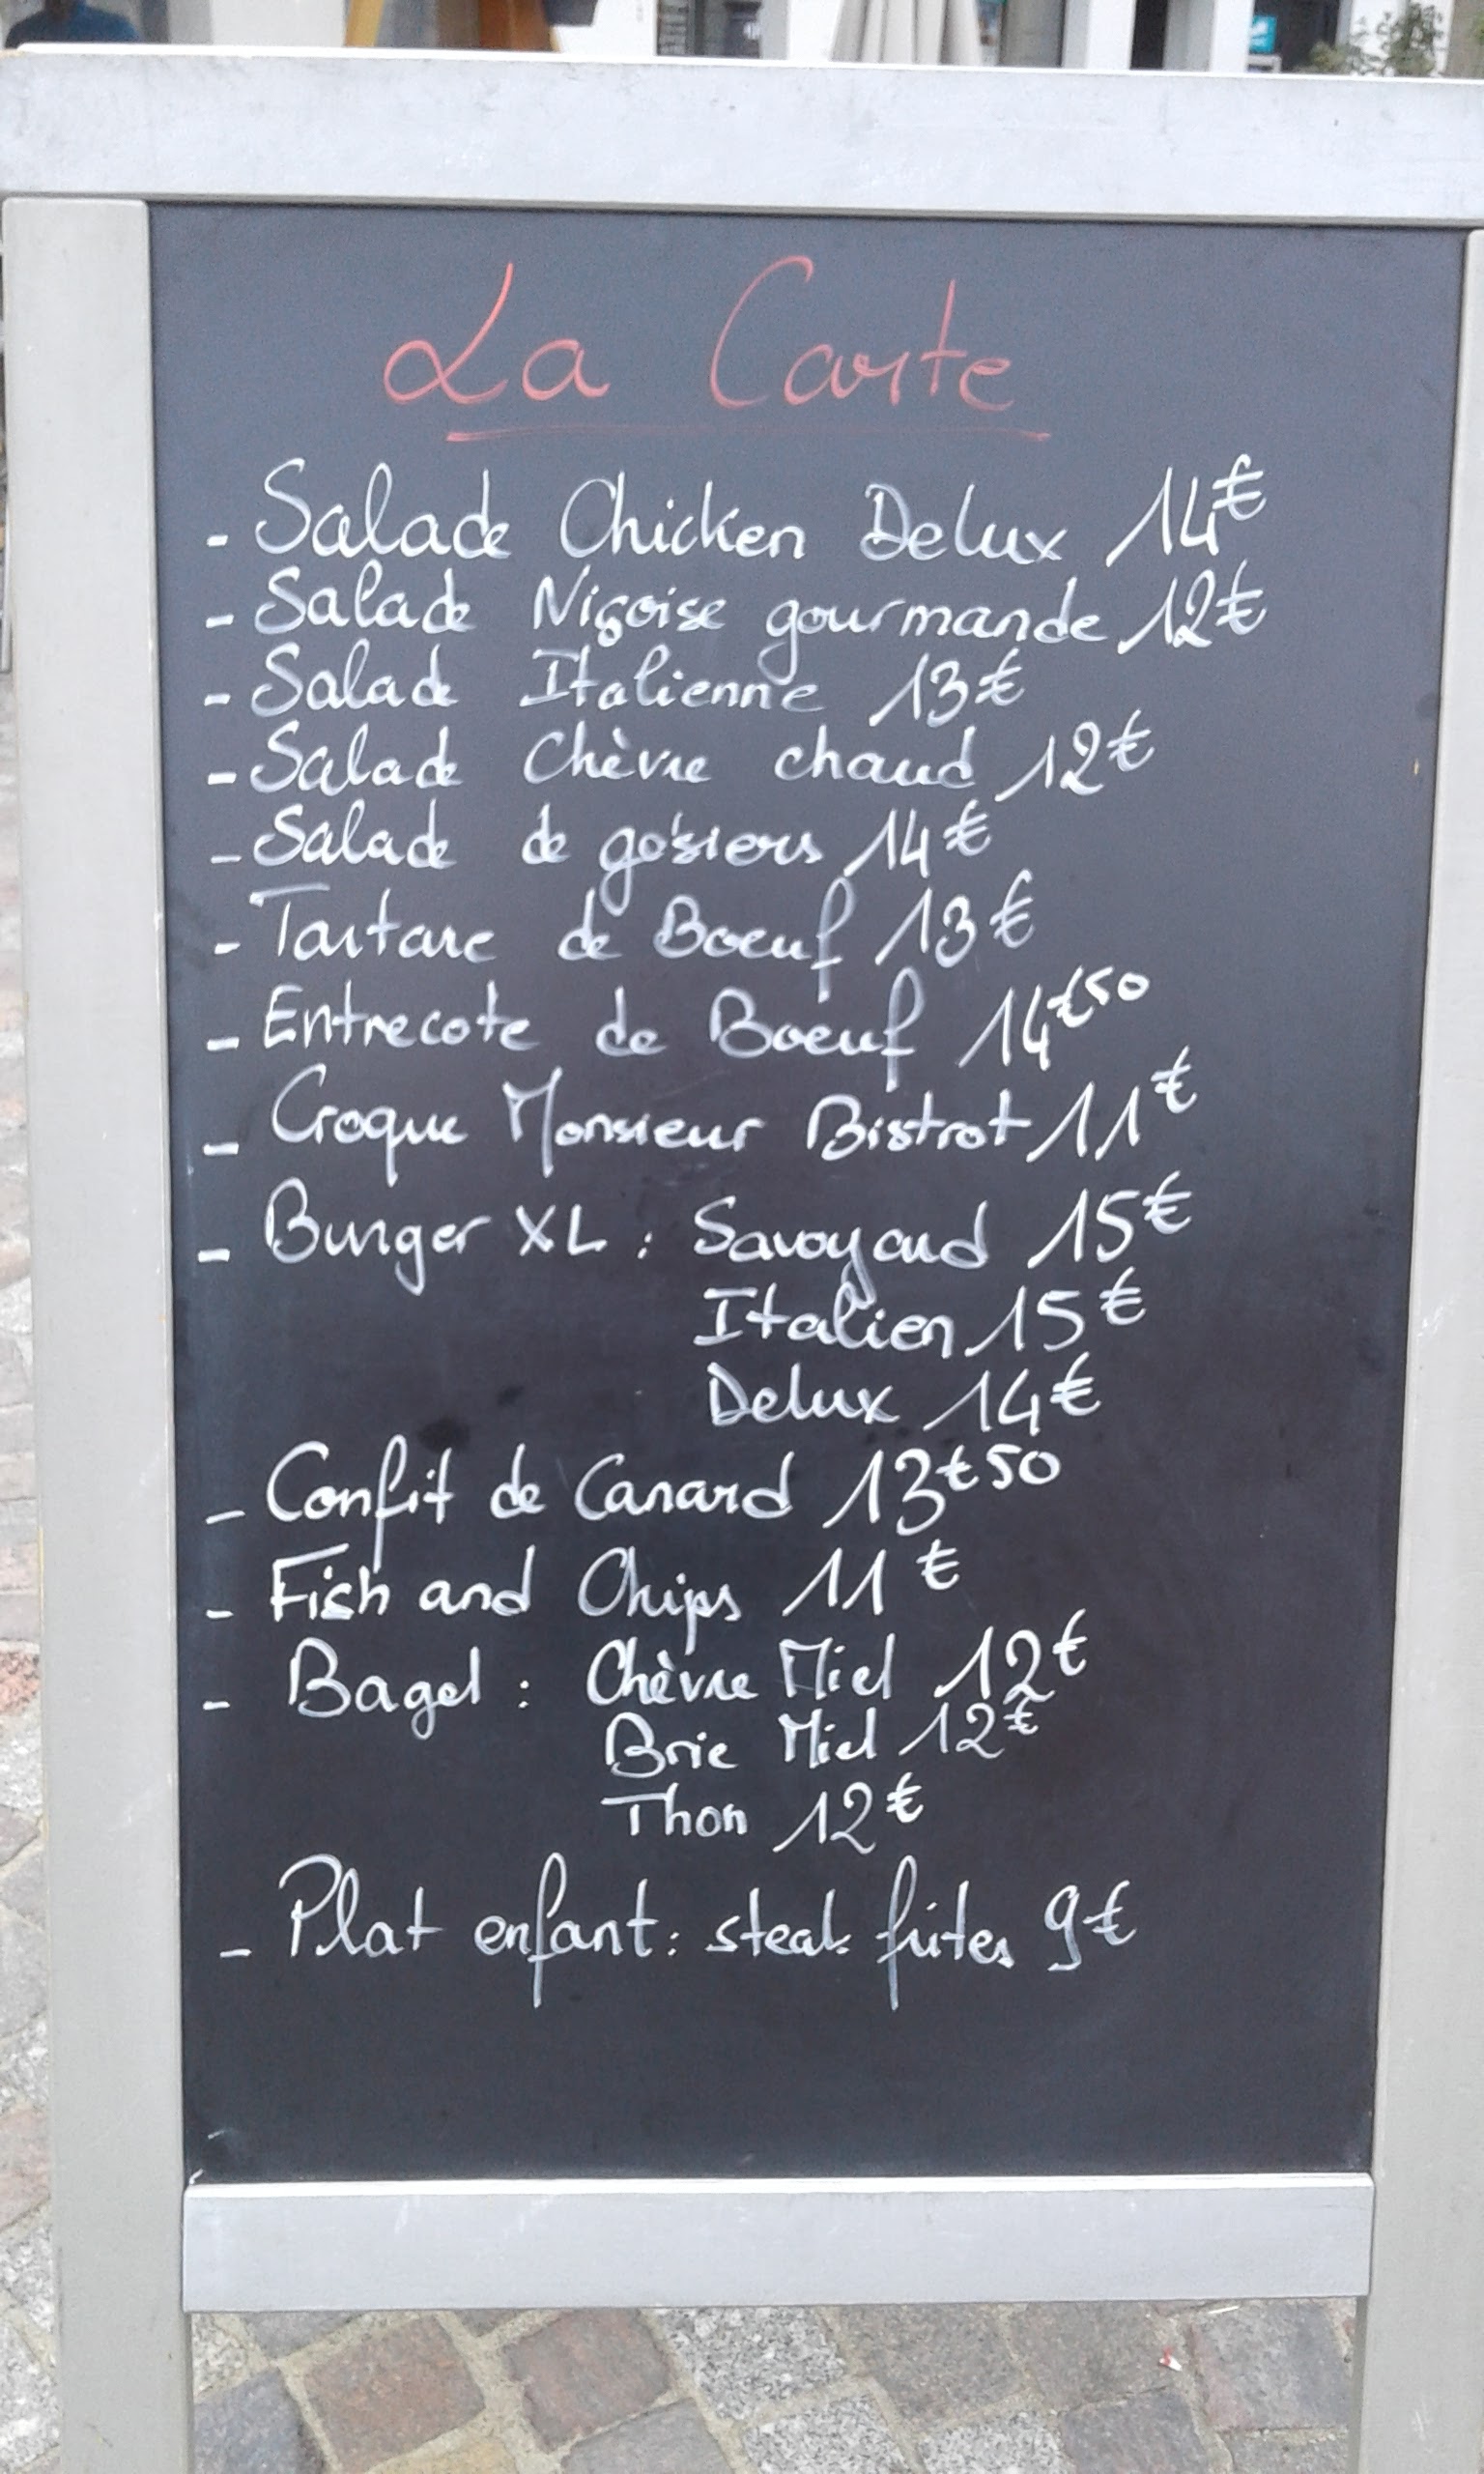 La Carte
- Salade Chicken Delux 14€
- Salade Niçoise gourmande 12€
- Salade Italienne 13€
- Salade Chèvre chaud 12€
- Salade de gésiers 14€
- Tartare de Boeuf 13€
- Entrecote de Boeuf 14€50
- Croque Monsieur Bistrot 11€
- Burger XL : Savoyard 15€
Italien 15€
Delux 14€
- Confit de Canard 13€50
- Fish and Chips 11€
- Bagel : Chèvre Miel 12€
Brie Miel 12€
Thon 12€
- Plat enfant : steak frites 9€